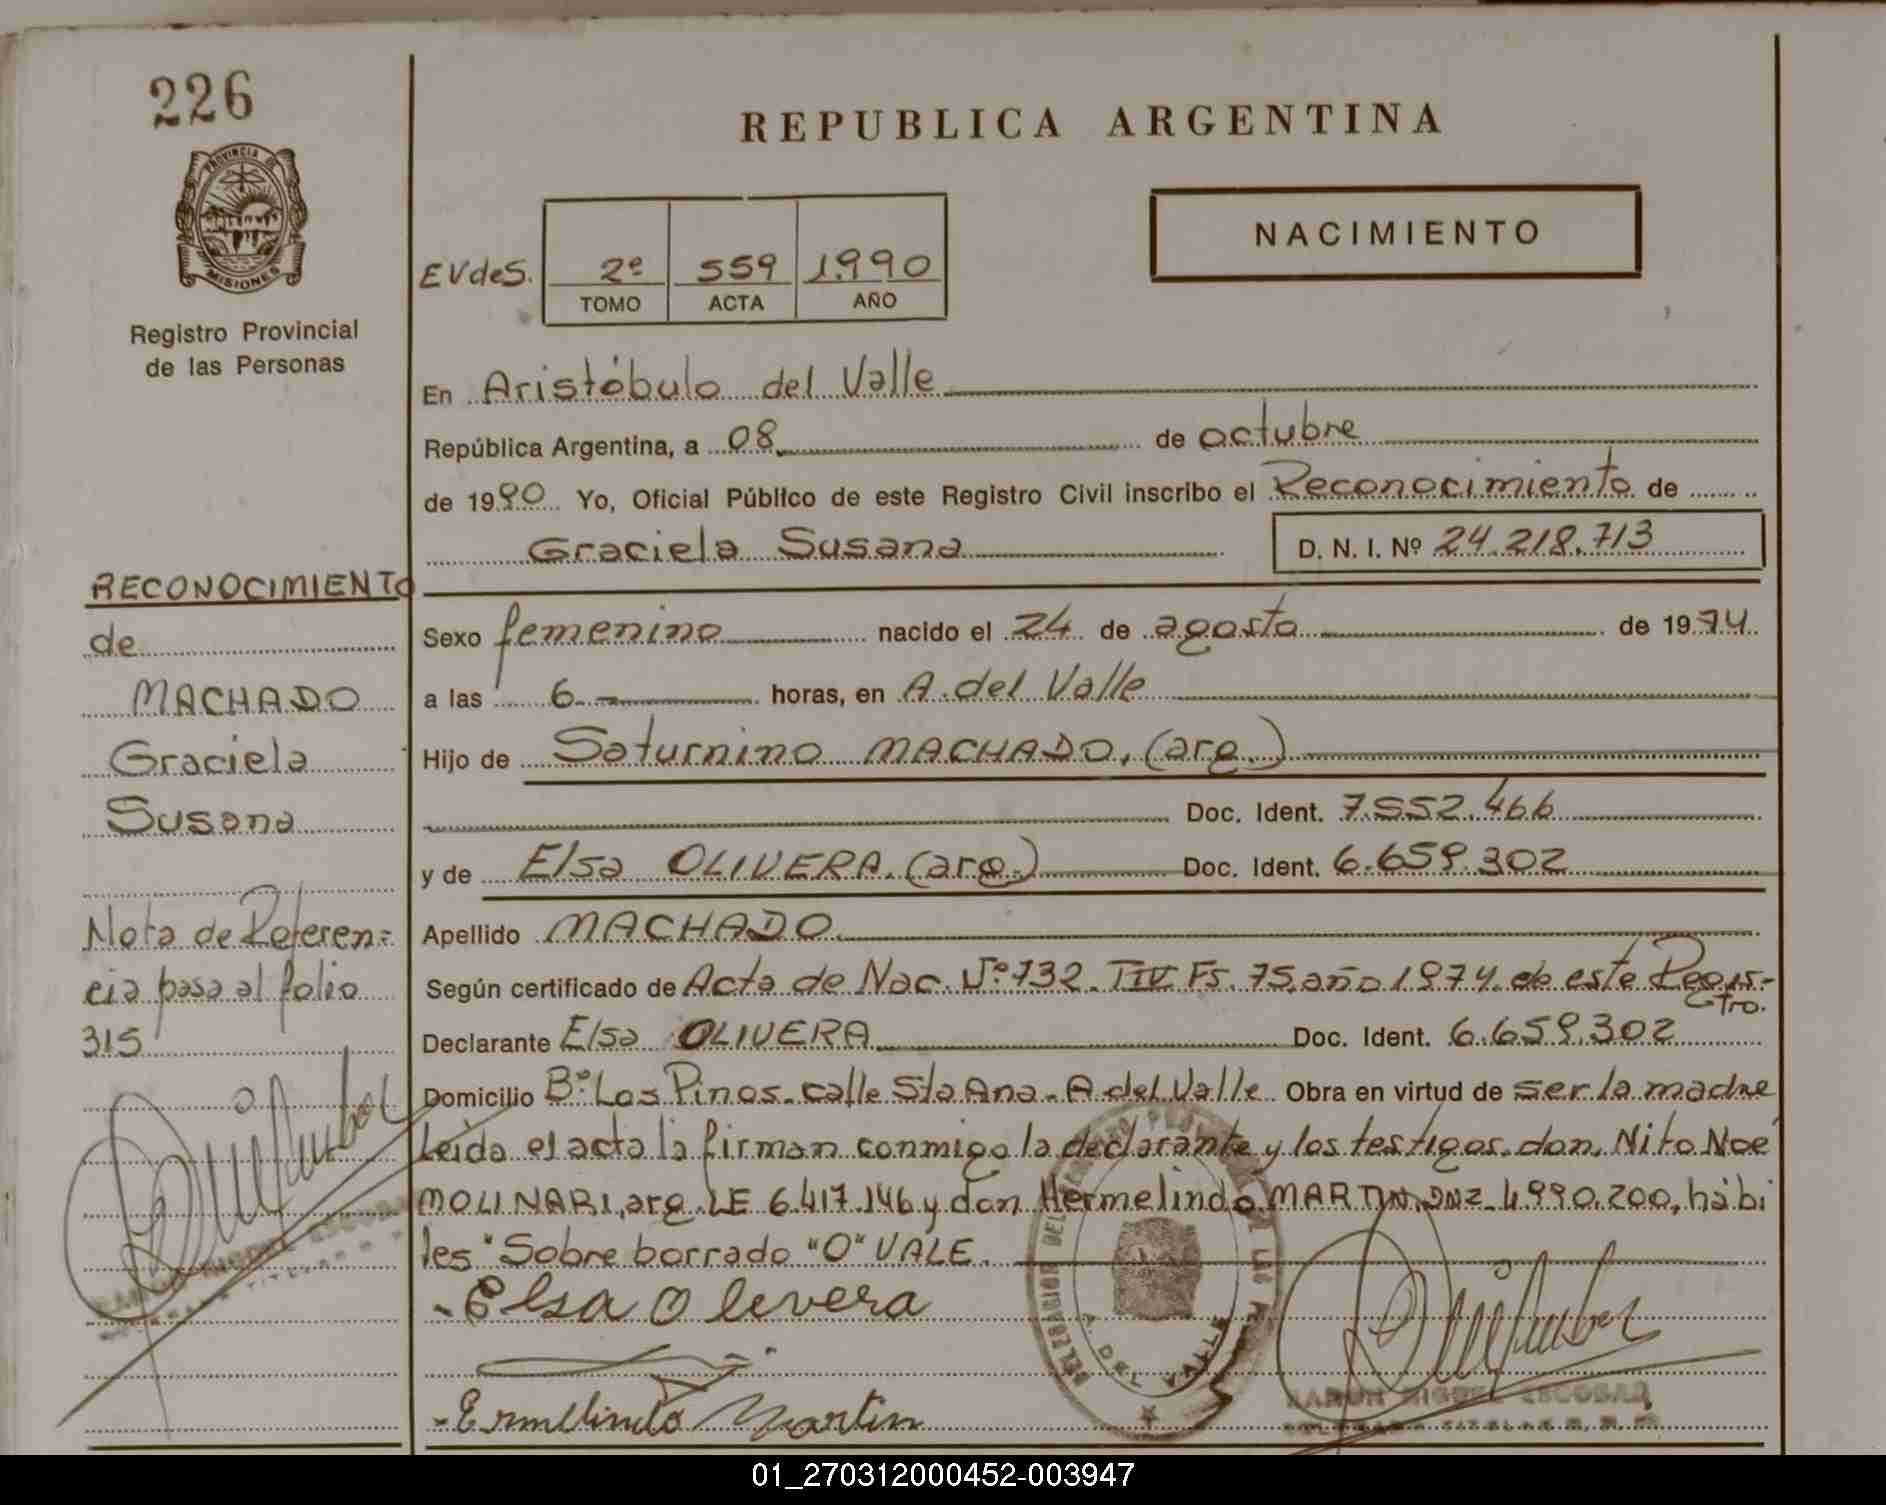 226
REPUBLICA ARGENTINA
PROVINCIA DE
MISIONES
Registro Provincial
de las Personas
EVdeS.
2º 559 1.990
TOMO ACTA AÑO
NACIMIENTO
En Aristóbulo del Valle
República Argentina, a 08 de octubre
de 1990 Yo, Oficial Público de este Registro Civil inscribo el Reconocimiento de
Graciela Susana D. N. I. Nº 24.218.713
Sexo femenino nacido el 24 de agosto de 1974
a las 6 horas, en A. del Valle
Hijo de Saturnino MACHADO, (arg.)
Doc. Ident. 7.552.466
y de Elsa OLIVERA. (arg.) Doc. Ident. 6.659.302
Apellido MACHADO
Según certificado de Acta de Nac. Nº 732. TIV Fs. 75. año 1974. de este Regis-
tro.
Declarante Elsa OLIVERA Doc. Ident. 6.659.302
Domicilio Bº Los Pinos. calle Sta Ana. A del Valle Obra en virtud de ser la madre
Leída el acta la firman conmigo la declarante y los testigos. don. Nito Noe
MOLINARI, arg. LE 6.417.146 y don Hermelindo MARTIN, DNI. 4.990.200, hábi
les "Sobre borrado "O" VALE.
Elsa Olevera
Ermelindo Martin
A. DEL VALLE
RAMON MIGUEL ESCOBAR
RECONOCIMIENTO
de
MACHADO
Graciela
Susana
Nota de Referen=
cia pasa al folio
315
RAMON MIGUEL ESCOBAR
01_270312000452-003947